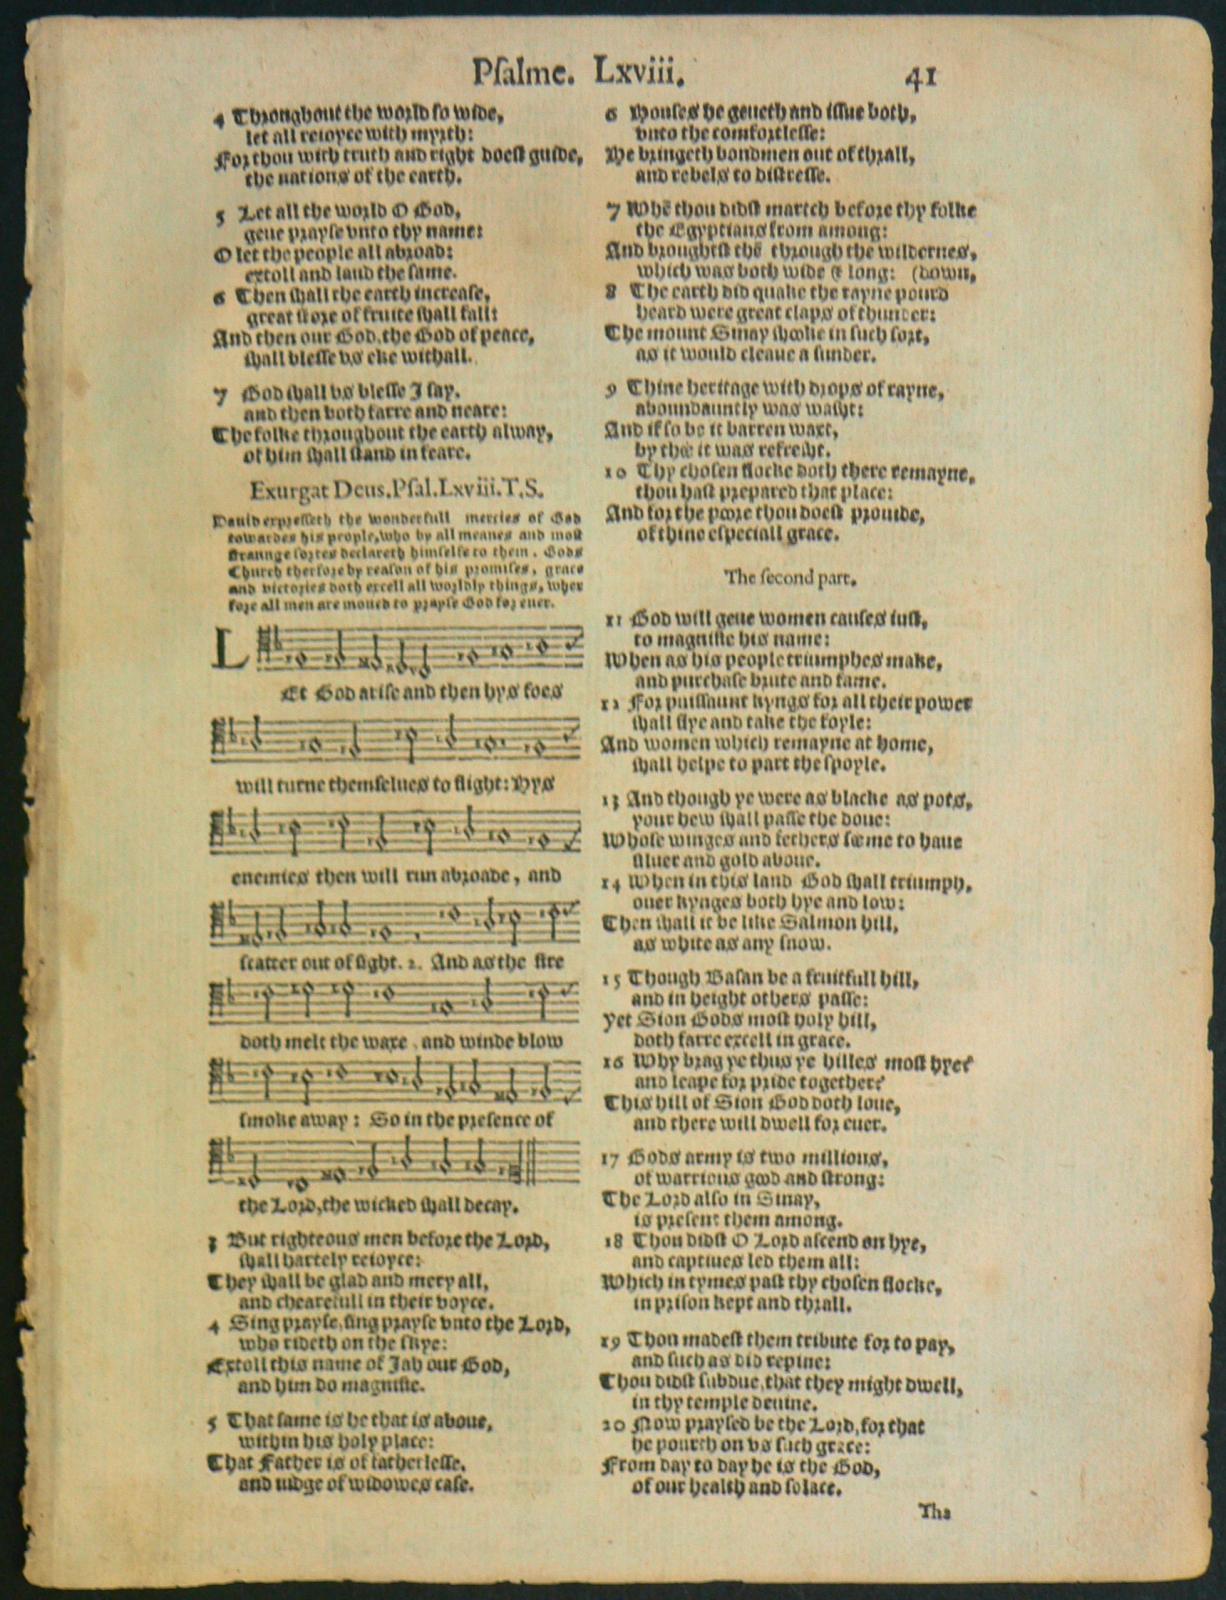 Psalme. Lxviii. 41
4 Throughout the world so wide,
let all reioyce with myrth:
For thou with truth and right doest guide,
the nations of the earth.
5 Let all the world O God,
geue prayse vnto thy name:
O let the people all abroad:
extoll and laud the same.
6 Then shall the earth increase,
great store of fruite shall fall:
And then our God, the God of peace,
shall blesse vs eke withall.
7 God shall vs blesse I say.
and then both farre and neare:
The folke throughout the earth alway,
of him shall stand in feare.
Exurgat Deus. Psal. Lxviii. T. S.
Dauid expresseth the wonderfull mercies of God
towardes his people, who by all meanes and most
straunge sortes declareth himselfe to them. Gods
Church therfore by reason of his promises, grace
and victories doth excell all worldly things, wher
fore all men are moued to prayse God for euer.
LEt God arise and then hys foes
will turne themselues to flight: Hys
enemies then will run abroade, and
scatter out of sight. 2. And as the fire
doth melt the waxe, and winde blow
smoke away: So in the presence of
the Lord, the wicked shall decay.
3 But righteous men before the Lord,
shall hartely reioyce:
They shall be glad and mery all,
and chearefull in their voyce.
4 Sing prayse, sing prayse vnto the Lord,
who rideth on the skye:
Extoll this name of Jah our God,
and him do magnifie.
5 That same is he that is aboue,
within his holy place:
That Father is of fatherlesse.
and iudge of widowes case.
6 Houses he geueth and issue both,
vnto the comfortlesse:
He bringeth bondmen out of thrall,
and rebels to distresse.
7 Whē thou didst martch before thy folke
the Egyptians from among:
And broughtst thē through the wildernes,
which was both wide & long: (down,
8 The earth did quake the rayne pourd
heard were great claps of thunder:
The mount Sinay shooke in such sort,
as it would cleaue a sunder.
9 Thine heritage with drops of rayne,
aboundauntly was washt:
And if so be it barren waxt,
by thee it was refresht.
10 Thy chosen flocke doth there remayne,
thou hast prepared that place:
And for the poore thou doest prouide,
of thine especiall grace.
The second part.
11 God will geue women causes iust,
to magnifie his name:
When as his people triumphes make,
and purchase brute and fame.
12 For puissaunt kyngs for all their power
shall flye and take the foyle:
And women which remayne at home,
shall helpe to part the spoyle.
13 And though ye were as blacke as pots,
your hew shall passe the doue:
Whose winges and fethers seeme to haue
siluer and gold aboue.
14 When in this land God shall triumph,
ouer kynges both hye and low:
Then shall it be like Salmon hill,
as white as any snow.
15 Though Basan be a fruitfull hill,
and in height others passe:
Yet Sion Gods most holy hill,
doth farre excell in grace.
16 Why brag ye thus ye hilles most hye?
and leape for pride together?
This hill of Sion God doth loue,
and there will dwell for euer.
17 Gods army is two millions,
of warrious good and strong:
The Lord also in Sinay,
is present them among.
18 Thou didst O Lord ascend on hye,
and captiues led them all:
Which in tymes past thy chosen flocke,
in prison kept and thrall.
19 Thou madest them tribute for to pay,
and such as did repine:
Thou didst subdue, that they might dwell,
in thy temple deuine.
20 Now praysed be the Lord, for that
he poureth on vs such grace:
From day to day he is the God,
of our health and solace.
Tho